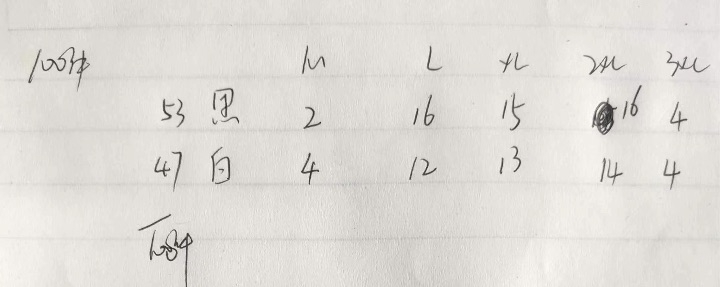 100件 M L XL 2XL 3XL
53 黑 2 16 15 16 4
47 白 4 12 13 14 4
100件